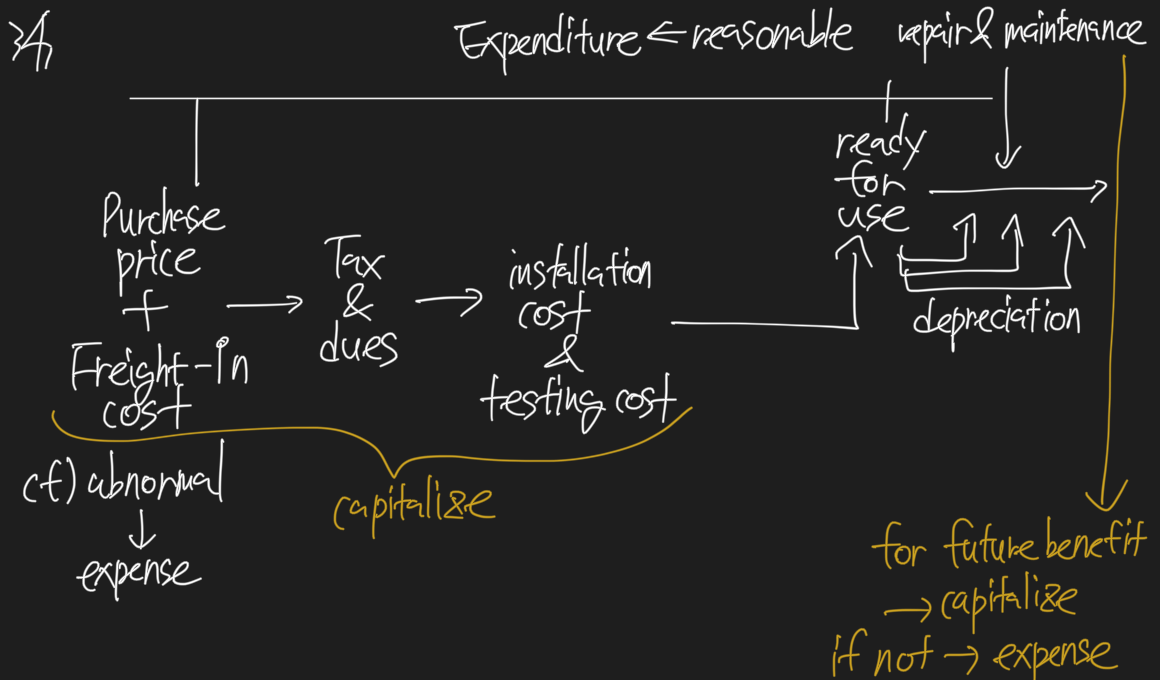 Expenditure ← reasonable
repair & maintenance
Purchase
price
+
Freight-in
cost
→
Tax
&
dues
→
installation
cost
&
testing cost
ready
for
use
depreciation
cf) abnormal
↓
expense
capitalize
for future benefit
→ capitalize
if not → expense